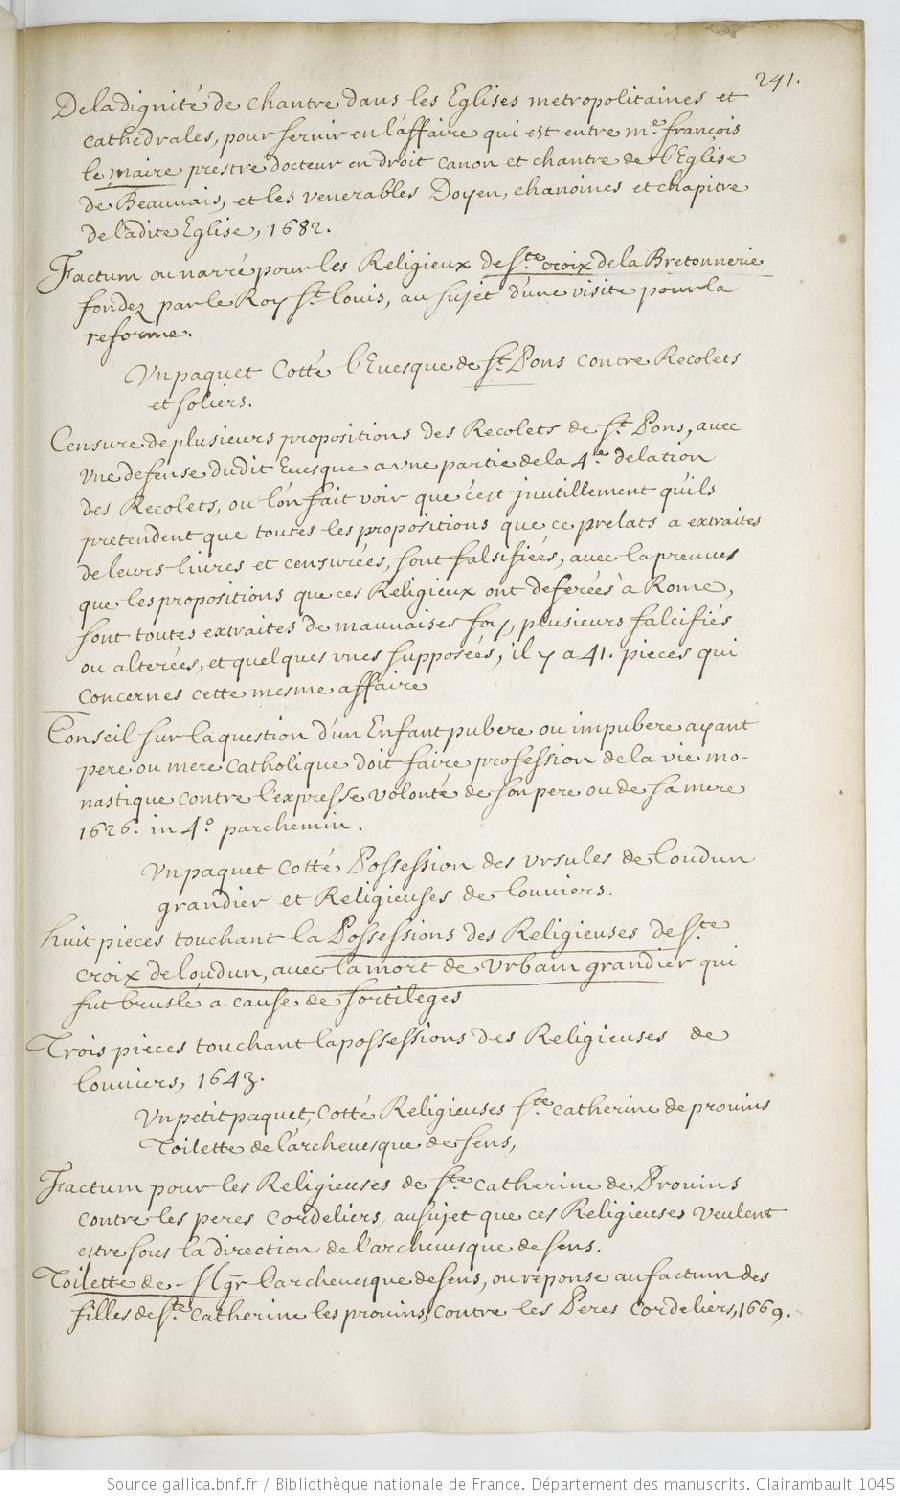 241.
De la dignité de chantre dans les Eglises metropolitaines et
cathedrales, pour servir en l'affaire qui est entre me. françois
le maire prestre docteur en droit canon et chantre de l'Eglise
de Beauvais, et les venerables Doyen, chanoines et chapitre
de ladite Eglise, 1682.
Factum ou narré pour les Religieux de Ste croix de la Bretonnerie
fondez par le Roy St. louis, au sujet d'une visite pour la
reforme.
Un paquet Cotté l'Evesque de St. Pons contre Recolets
et soliers.
Censure de plusieurs propositions des Recolets de St. Pons, avec
une defense dudit Evesque a une partie de la 4le. delation
des Recolets, ou l'on fait voir que c'est jnutillement qu'ils
pretendent que toutes les propositions que ce prelats a extraites
de leurs livres et censurées, sont falsifiées, avec la preuves
que les propositions que ces Religieux ont deferées à Rome,
sont toutes extraites de mauvaises foy, plusieurs falcifiés
ou alterées, et quelques unes supposées, il y a 41. pieces qui
concernes cette mesme affaire
Conseil sur la question d'un Enfant pubere ou impubere ayant
pere ou mere catholique doit faire profession de la vie mo-
nastique contre l'expresse volonté de son pere ou de sa mere
1626. in 4o parchemin.
Un paquet cotté Possession des ursules de loudun
grandier et Religieuses de louviers.
huit pieces touchant la Possessions des Religieuses de Ste.
croix de loudun, avec la mort de Urbain grandier qui
fut bruslé a cause de sortileges
Trois pieces touchant la possessions des Religieuses de
louviers, 1643.
Un petit paquet, Cotté Religieuses Ste. catherine de provins
Toilette de l'archevesque de sens,
Factum pour les Religieuses de Ste. Catherine de Provins
contre les peres cordeliers, au sujet que ces Religieuses veulent
estre sous la direction de l'archevesque de sens.
Toilette de Mgr l'archevesque de sens, ou réponse au factum des
filles de Ste. catherine les provins, contre les Peres Cordeliers, 1669.
Source gallica.bnf.fr / Bibliothèque nationale de France. Département des manuscrits. Clairambault 1045